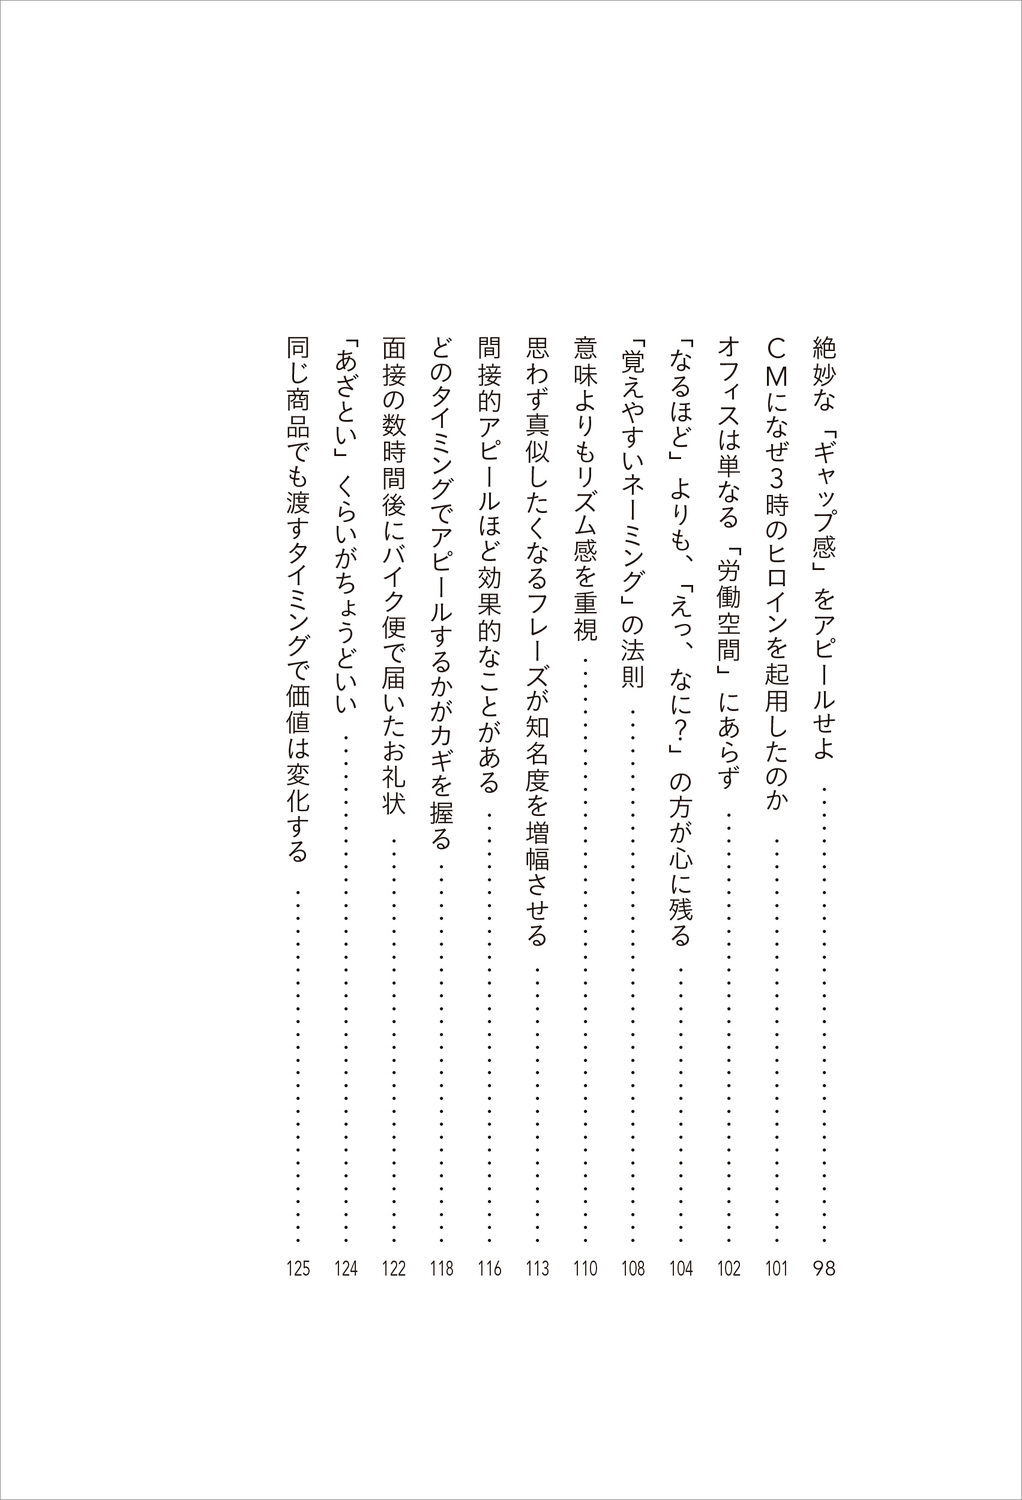 絶妙な「ギャップ感」をアピールせよ……………………………… 98
CMになぜ3時のヒロインを起用したのか……………………………… 101
オフィスは単なる「労働空間」にあらず……………………………… 102
「なるほど」よりも、「えっ、なに?」の方が心に残る……………………………… 104
「覚えやすいネーミング」の法則……………………………… 108
意味よりもリズム感を重視……………………………… 110
思わず真似したくなるフレーズが知名度を増幅させる……………………………… 113
間接的アピールほど効果的なことがある……………………………… 116
どのタイミングでアピールするかがカギを握る……………………………… 118
面接の数時間後にバイク便で届いたお礼状……………………………… 122
「あざとい」くらいがちょうどいい……………………………… 124
同じ商品でも渡すタイミングで価値は変化する……………………………… 125